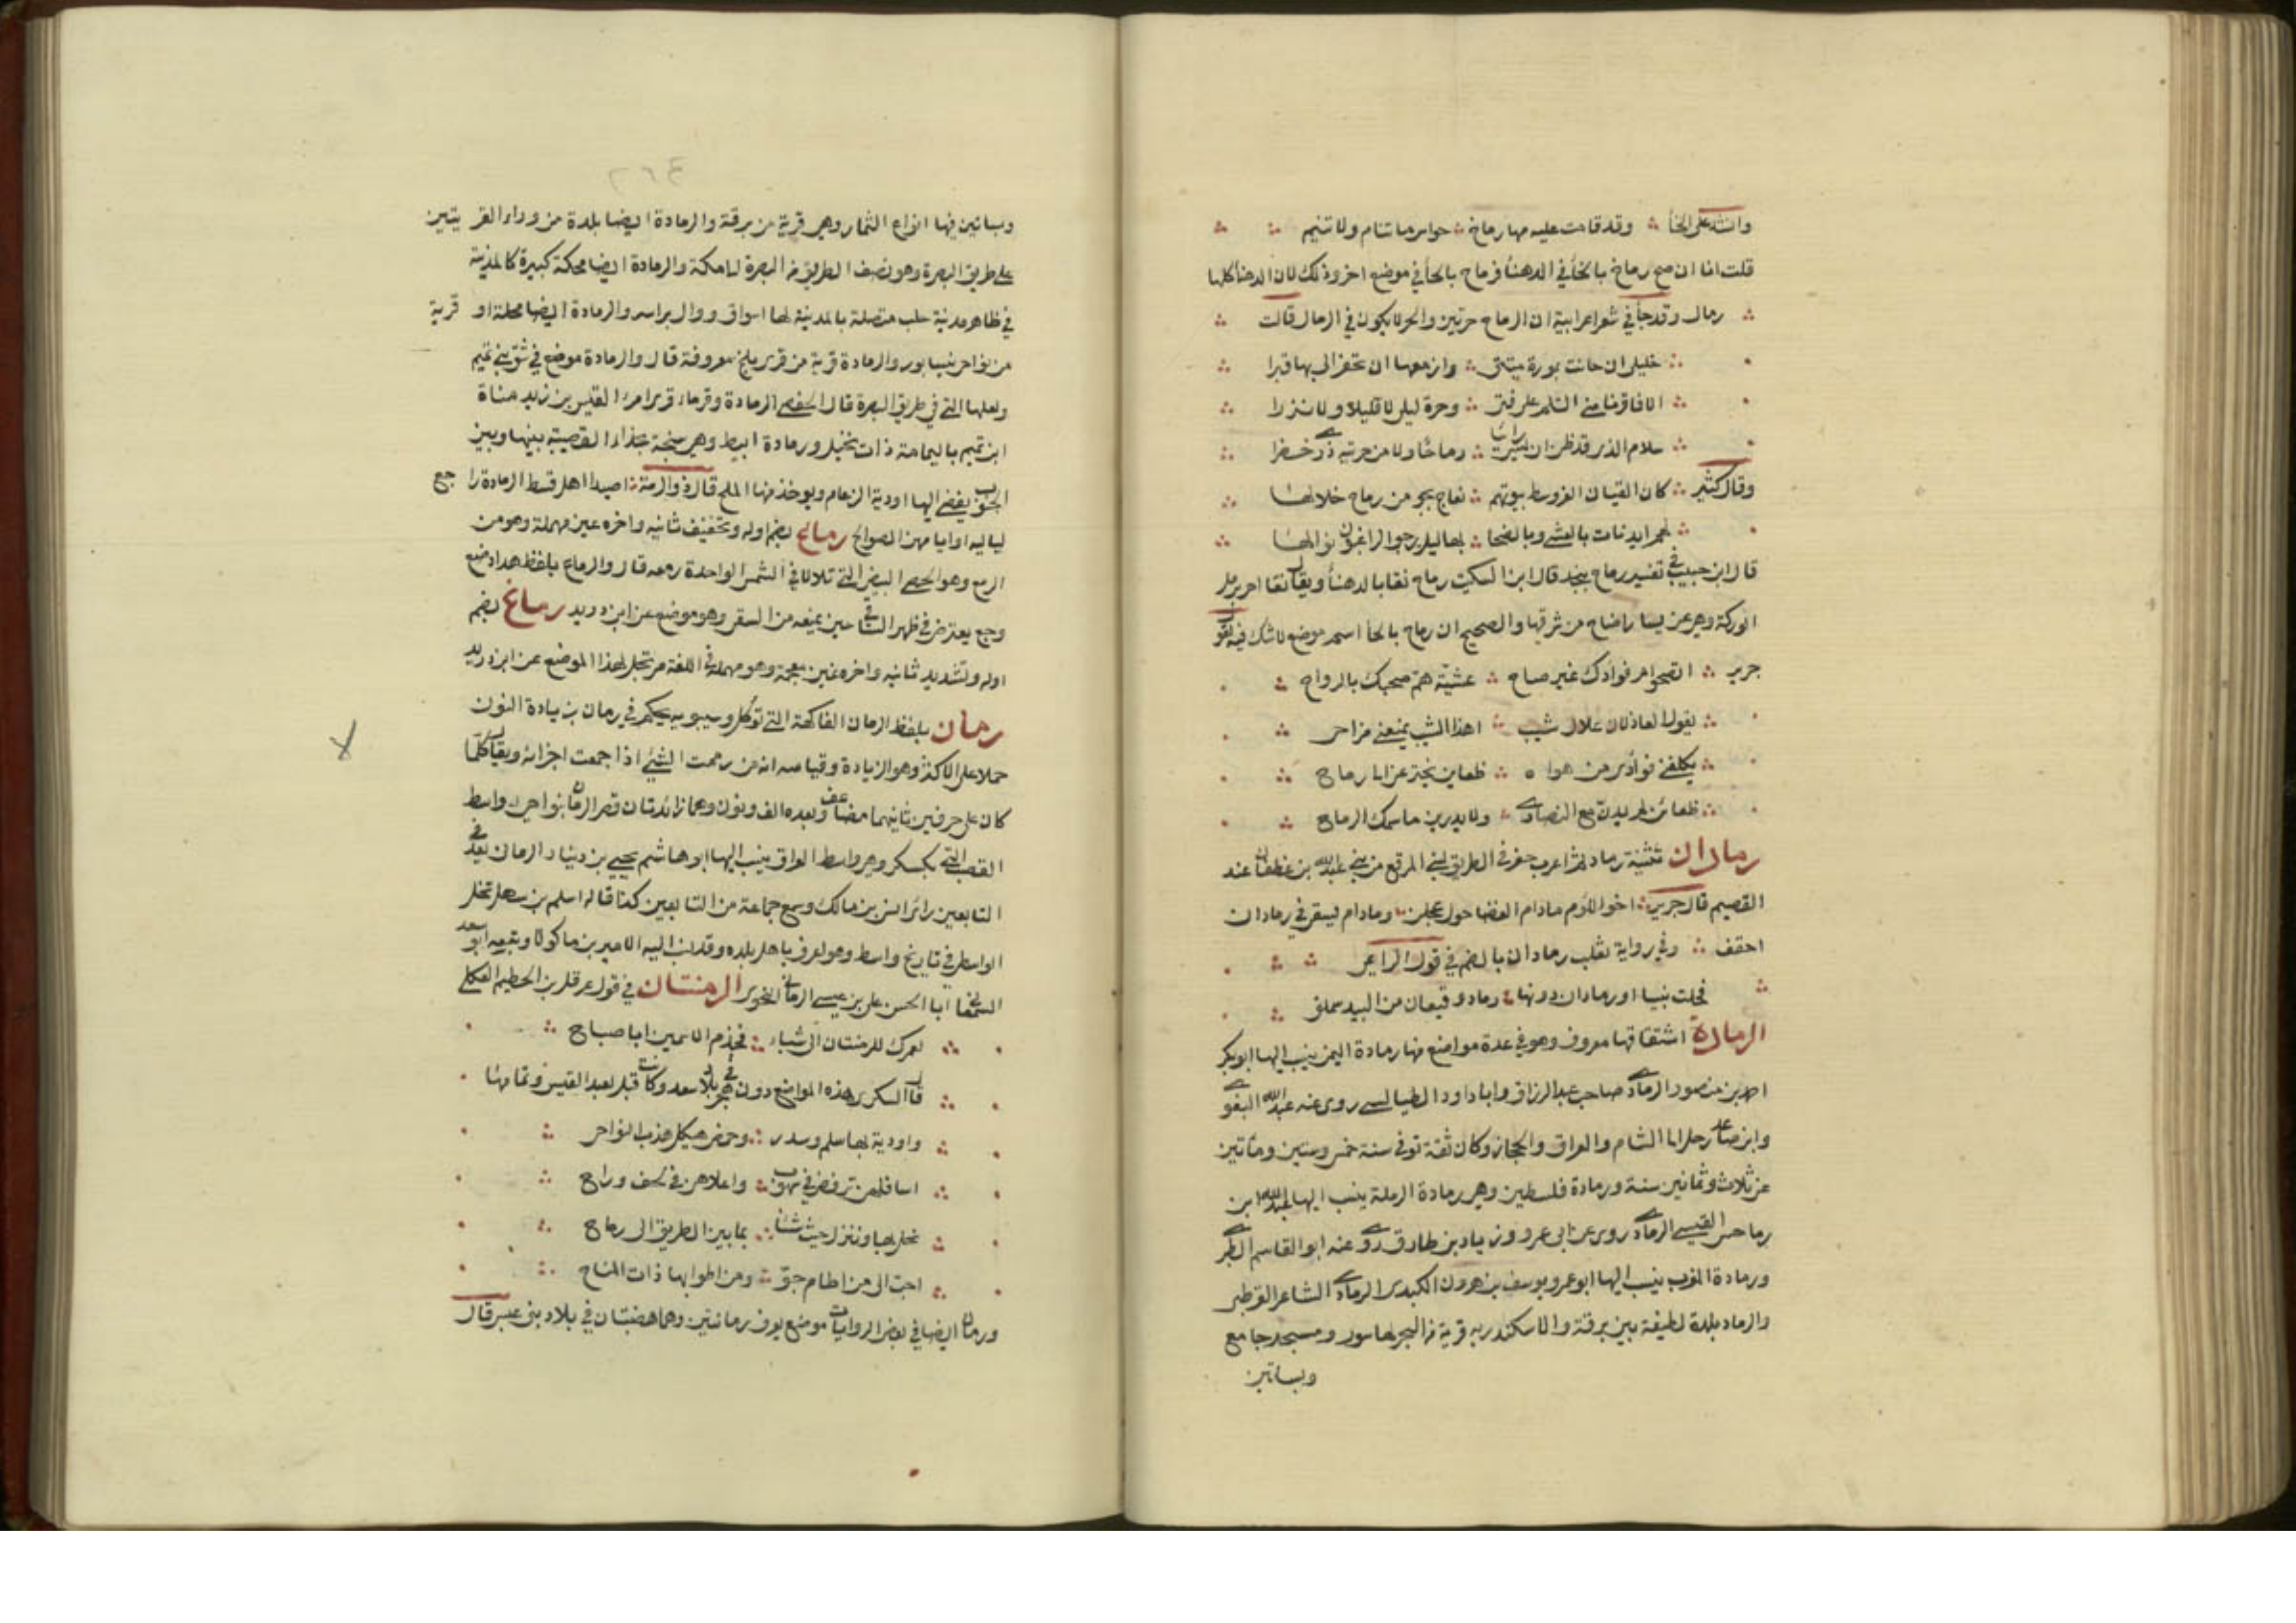 وانشد على الخاء وقد قامت عليه مها رماخ حواسر ما تنام ولا تنيم
قلت انا ان صح رماخ بالخاء في الدهنا فرماح بالحاء في موضع اخر وذلك لان الدهنا كلها
رمال وقد جاء في شعر اعرابية ان الرماح حرتين والحر لا يكون في الرمال قالت
خليلي ان حانت بمورة ميتتي وازمعتما ان تحفرا لي بها قبرا
الا فاقرنا مني السلام على فتى وحرة ليلى لا قليلا ولا نزرا
سلام الذي قد ظن ان ليس رائيا رماحا ولا من حرتيه ذرى خضرا
وقال كثير كان القيان الغر وسط بيوتهم نعاج بجو من رماح خلالها
لهم اندنات بالعشي وبالضحا بهاليل يرجو الراغبون نوالها
قال ابن حبيب في تفسير رماح بنجد قال ابن السكيت رماح نقا بالدهنا ويقال نقا اخر برمل
الوركة وهي عن يسار اضاخ من شرقها والصحيح ان رماح بالحاء اسم موضع لا شك فيه لقول
جرير اتصحو ام فوادك غير صاح عشية هم صحبك بالرواح
يقول العاذلات علاك شيب اهذا الشيب يمنعني مزاحي
يكلفني فوادي من هواه ظعاين يجتزعن الى رماح
ظعائن لم يدن مع النصارى ولا يدرين ما سمك الرماح
رمادان تثنية رماد لجفر في الطريق لبني المرقع من بني عبد الله بن غطفان عند
القصيم قال جرير اخو اللؤم ما دام الغضا حول عجلز وما دام يسقى في رمادان
احقف وفي رواية ثعلب رمادان بالضم في قول الراعي
فحلت نبيا او رمادان دونها رماد وقيعان من البيد سملق
الرمادة اشتقاقها معروف وهو في عدة مواضع منها رمادة اليمن ينسب اليها ابو بكر
احمد بن منصور الرمادي صاحب عبد الرزاق وابا داود الطيالسي روى عنه عبد الله البغوي
وابن صاعد رحل الى الشام والعراق والحجاز وكان ثقة توفى سنة خمس وستين ومأتين
عن ثلاث وثمانين سنة ورمادة فلسطين وهي رمادة الرملة ينسب اليها عبد الله ابن
رماحس القيسي الرمادي روى عن ابي عمرو زياد بن طارق روى عنه ابو القاسم الطبري
ورمادة المغرب ينسب اليها ابو عمرو يوسف بن هرون الكندي الرمادي الشاعر القرطبي
والرماد بلدة لطيفة بين برقة والاسكندريه قريبة من البحر لها سور ومسجد جامع
وبساتين
وبساتين فيها انواع الثمار وهي قرية من برقة والرمادة ايضا بلدة من وراء القريتين
على طريق البصرة وهو نصف الطريق من البصرة الى مكة والرمادة ايضا محكة كبيرة كالمدينة
في ظاهر مدينة حلب متصلة بالمدينة لها اسواق ووال براسه والرمادة ايضا محلة او قرية
من نواحي نيسابور والرمادة قرية من قرى بلخ معروفة قال والرمادة موضع في شق بني تميم
ولعلها التي في طريق البصرة قال الحفصي الرمادة وقرماء قرى امرء القيس بن زيد مناة
ابن تميم باليمامة ذات نخيل ورمادة ابيط وهي سبخة بحذاء القصيبة بينها وبين
الجنوب يفضي اليها اودية الزغام ويوخذ منها الملح قال ذو الرمة اصيداء هل قيظ الرمادة راجع
لياليه او ايامهن الصوالح رماع بضم اوله وتخفيف ثانيه واخره عين مهملة وهو من
اليرمع وهو الحصى البيض التي تلألأ في الشمس الواحدة رمعه قال والرماع بلفظ هذا موضع
وجع يعترض في ظهر الساقي حين يمنعه من السقي وهو موضع عن ابن دريد رماغ بضم
اوله وتشديد ثانيه واخره غين معجمة وهو مهمل في اللغة مرتجل لهذا الموضع عن ابن دريد
رمان بلفظ الرمان الفاكهة التي توكل وسيبويه يحكم في رمان بزيادة النون
حملا على الاكثر وهو الزيادة وقياسه انه من رممت الشئ اذا جمعت اجزائه ويقال كلما
كان على حرفين ثانيهما مضاعف وبعده الف ونون وهما زائدتان قصر الرمان بنواحي واسط
القصب التي بكسكر وهي واسط العراق ينسب اليها ابو هاشم يحيى بن دينار الرماني يعد في
التابعين رائ انس بن مالك وسمع جماعة من التابعين كذا قاله اسلم بن سهل بحشل
الواسطي في تاريخ واسط وهو اعرف باهل بلده وقد نسب اليه الامير بن ماكولا وتبعه ابو سعد
السمعاني ابا الحسن علي بن عيسى الرماني النحوي الرمنتان في قول عرقل بن الحطيم العكلي
لعمرك للرمنتان الى شباء فحزم الاسمين الى صباح
قال السكري هذه المواضع دون هجر في بلاد سعد وكانت قبل لعبد القيس وتمامها
واودية بها سلم وسدر وحمض هيكل هذب النواحي
اسافلهن ترفض في سهوب واعلاهن في لحف وراح
نحل بها وننزل حيث شئنا بما بين الطريق الى رماح
احب الى من اطام جو ومن اطوابها ذات المناح
ورمان ايضا في بعض الروايات موضع يعرف برمانتين وهما هضبتان في بلاد بني عبس قال